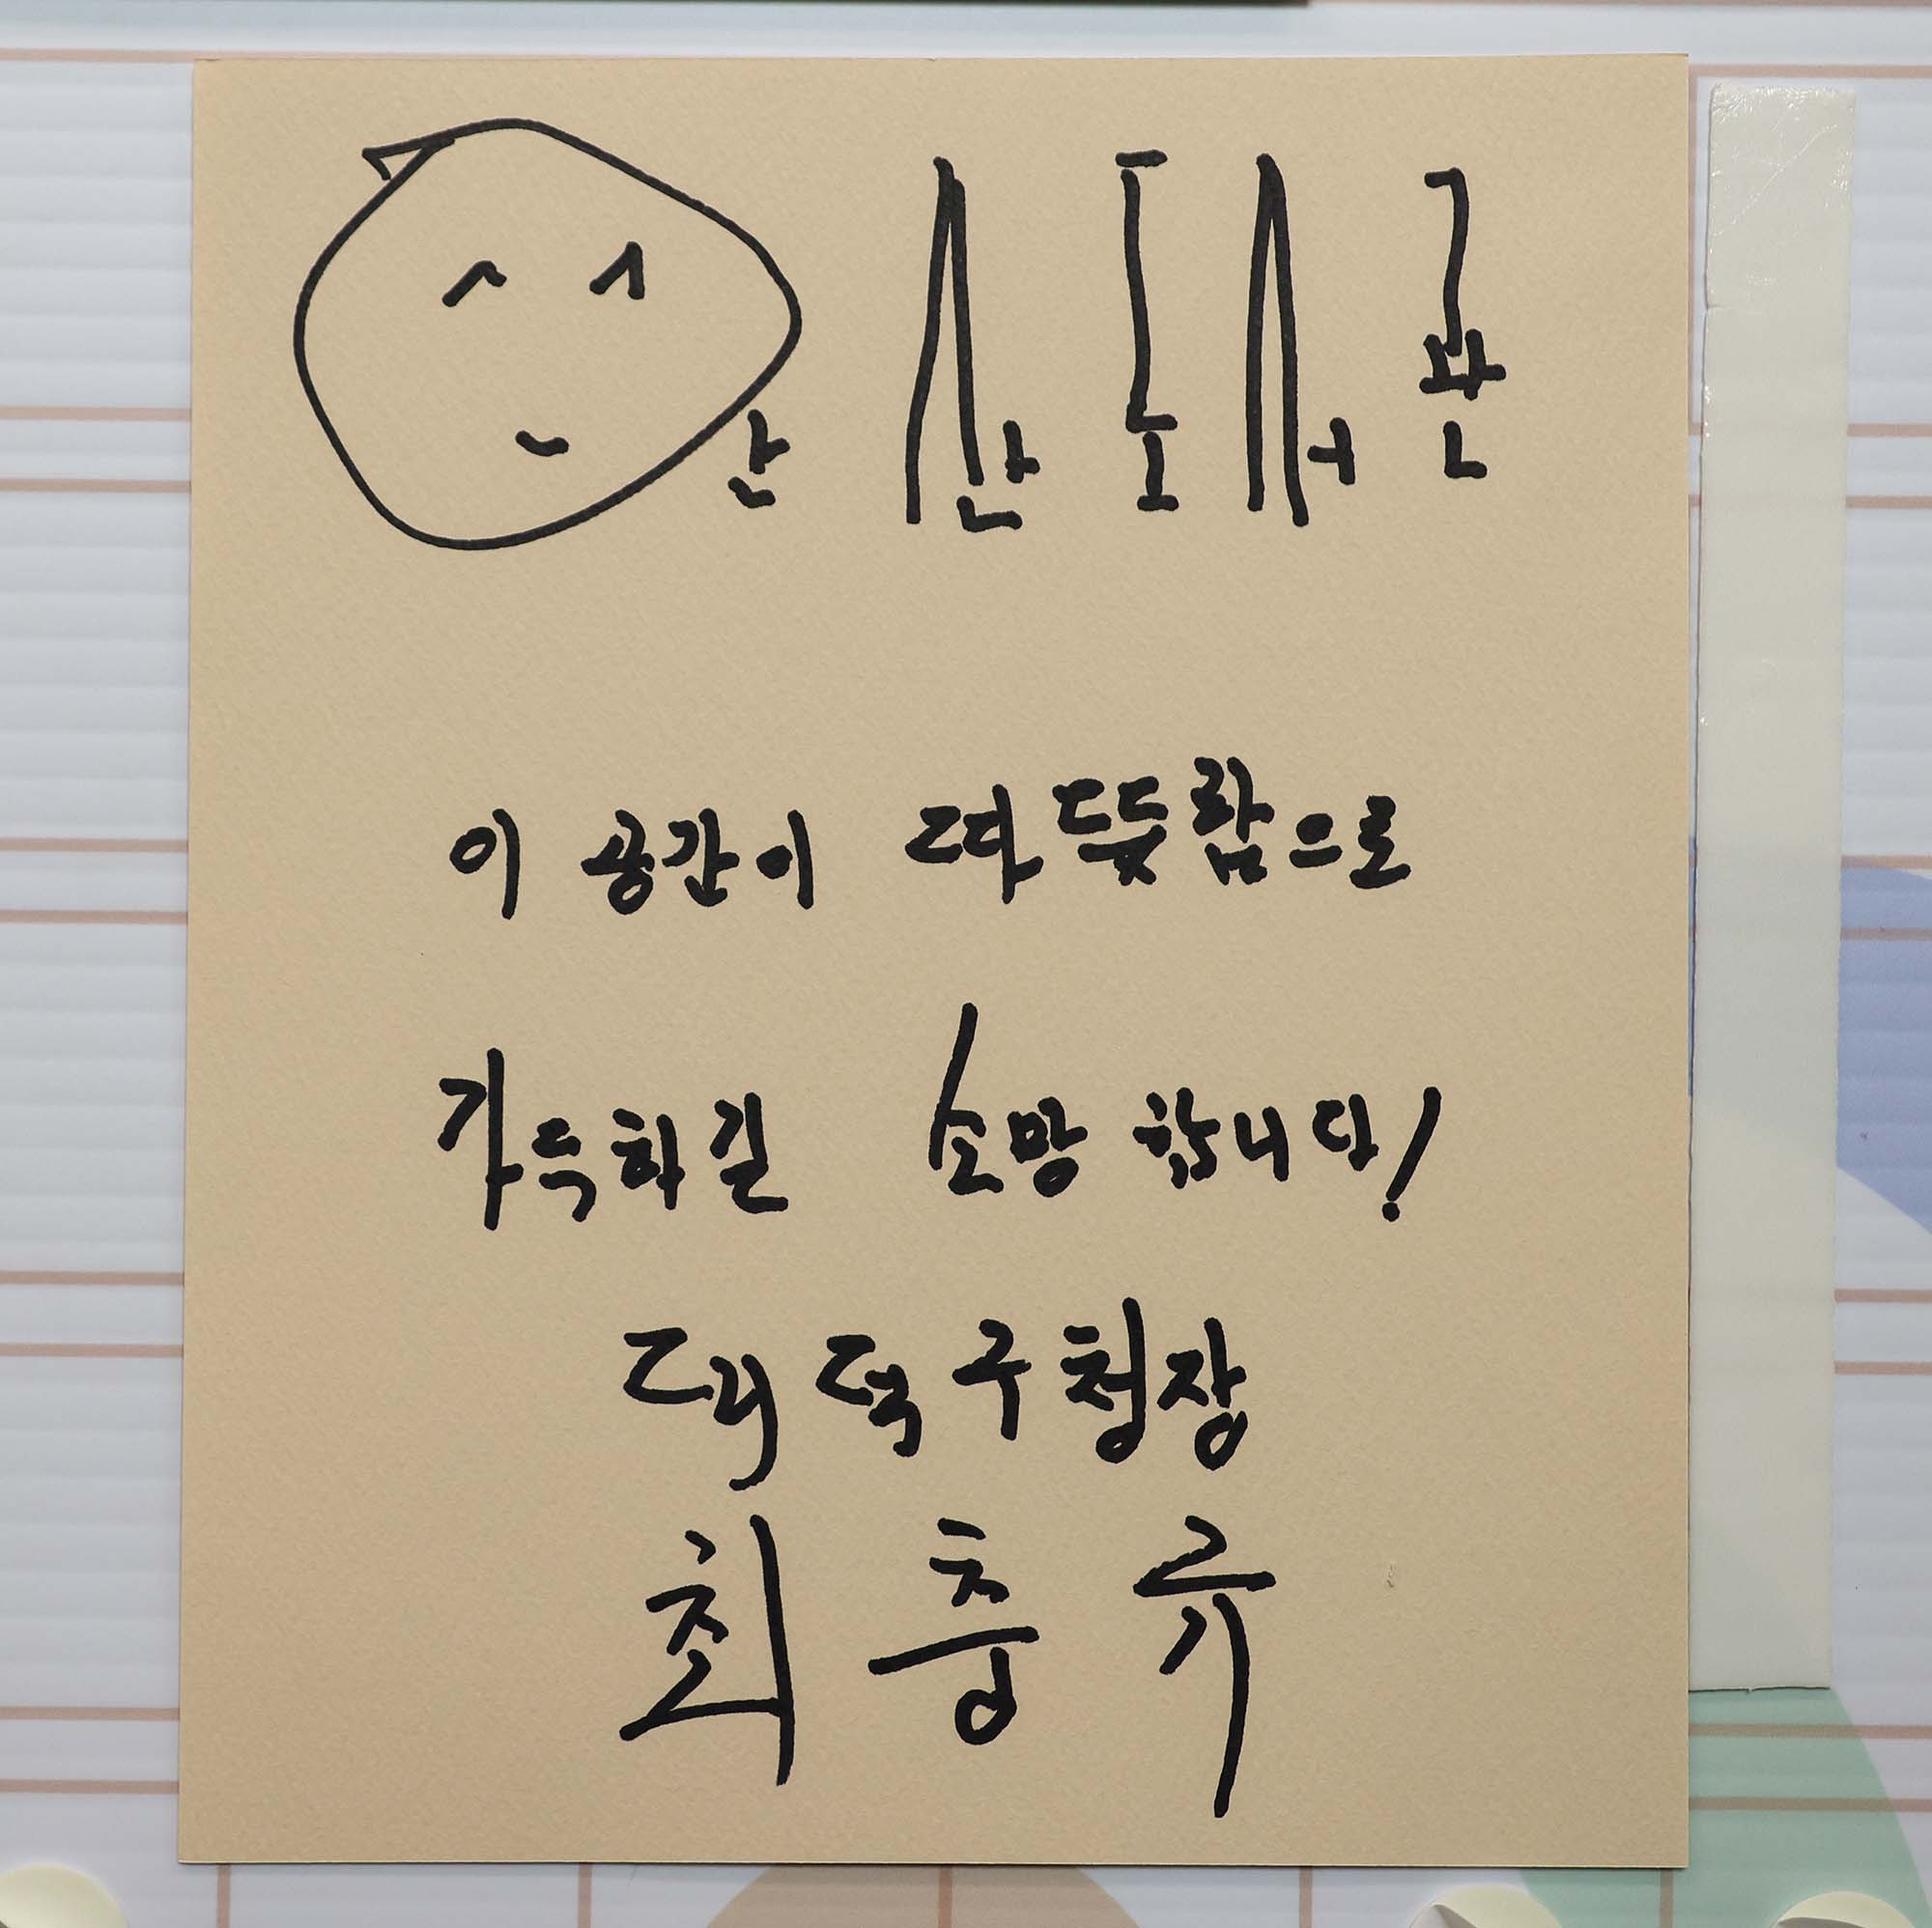 안산도서관
이 공간이 따뜻함으로
가득하길 소망합니다!
대덕구청장
최충규